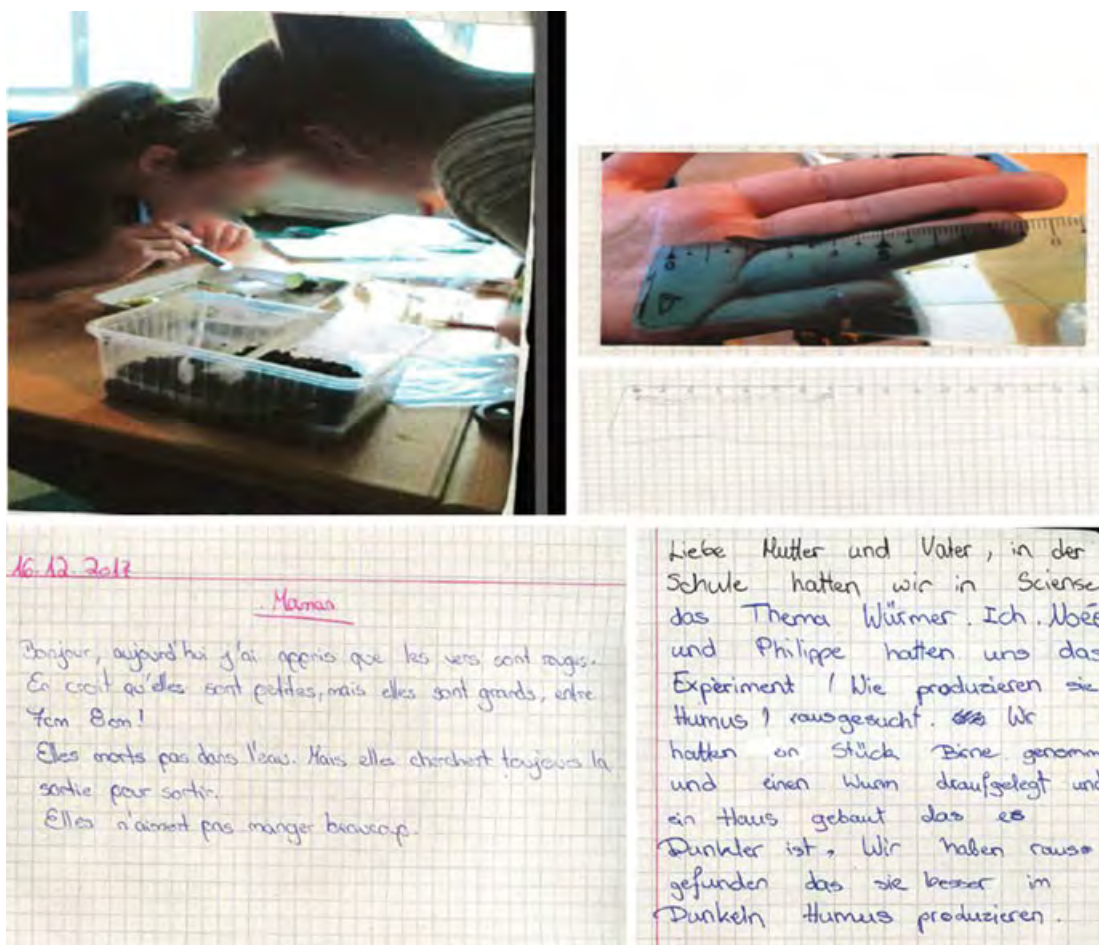 16.12.2017
Maman
Bonjour, aujourd'hui j'ai appris que les vers sont rouges.
En croit qu'elles sont petites, mais elles sont grands, entre
7cm 8cm!
Elles morts pas dans l'eau. Mais elles cherchent toujours la
sortie pour sortir.
Elles n'aiment pas manger beaucoup.
Liebe Mutter und Vater, in der
Schule hatten wir in Sciense
das Thema Würmer. Ich, Noée
und Philippe hatten uns das
Experiment ! Wie produzieren sie
Humus ! rausgesucht. Wir
hatten ein Stück Birne genomm
und einen Wurm draufgelegt und
ein Haus gebaut das es
Dunkler ist, Wir haben raus
gefunden das sie besser im
Dunkeln Humus produzieren.